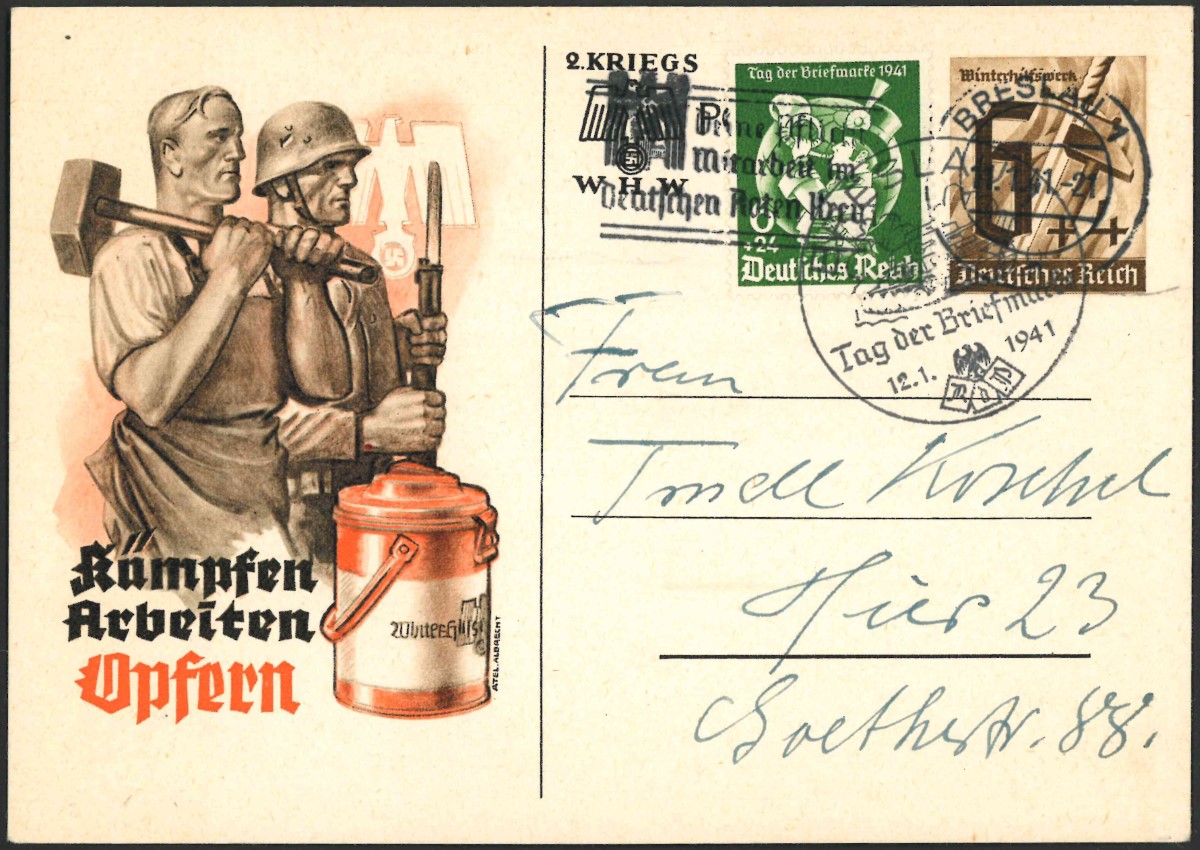 Kämpfen
Arbeiten
Opfern
Winterhilfs
ATEL. ALBRECHT
2. KRIEGS
W H W
Deine Pflicht
Mitarbeit im
Deutschen Roten Kreuz
Tag der Briefmarke 1941
6
+24
Deutsches Reich
Winterhilfswerk
6 + 4
Deutsches Reich
BRESLAU 1
1.41.-21
Tag der Briefmarke
12.1. 1941
Frau
Trudl Koschel
Hier 23
Goethestr. 88.